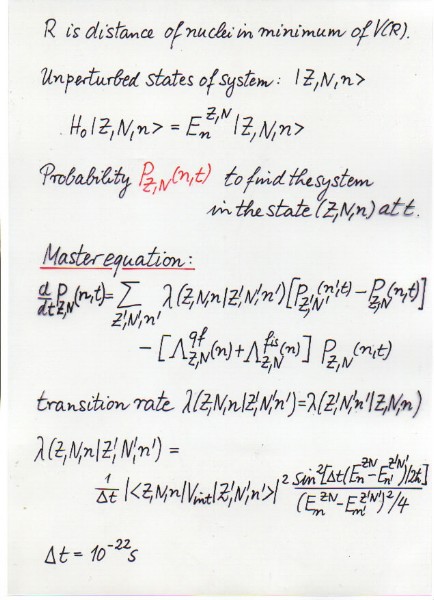 R is distance of nuclei in minimum of V(R).
Unperturbed states of system: |Z,N,n>
H₀|Z,N,n> = Eₙ^{Z,N}|Z,N,n>
Probability P_{Z,N}(n,t) to find the system
in the state (Z,N,n) at t.
Master equation:
d/dt P_{Z,N}(n,t) = Σ_{Z',N',n'} λ(Z,N,n|Z',N',n')[P_{Z',N'}(n',t) − P_{Z,N}(n,t)]
− [Λ^{qf}_{Z,N}(n) + Λ^{fis}_{Z,N}(n)] P_{Z,N}(n,t)
transition rate λ(Z,N,n|Z',N',n') = λ(Z',N',n'|Z,N,n)
λ(Z,N,n|Z',N',n') =
1/Δt |<Z,N,n|V_{int}|Z',N',n'>|² sin²[Δt(Eₙ^{ZN} − E_{n'}^{Z'N'})/2ħ] / (Eₙ^{ZN} − E_{n'}^{Z'N'})²/4
Δt = 10⁻²² s